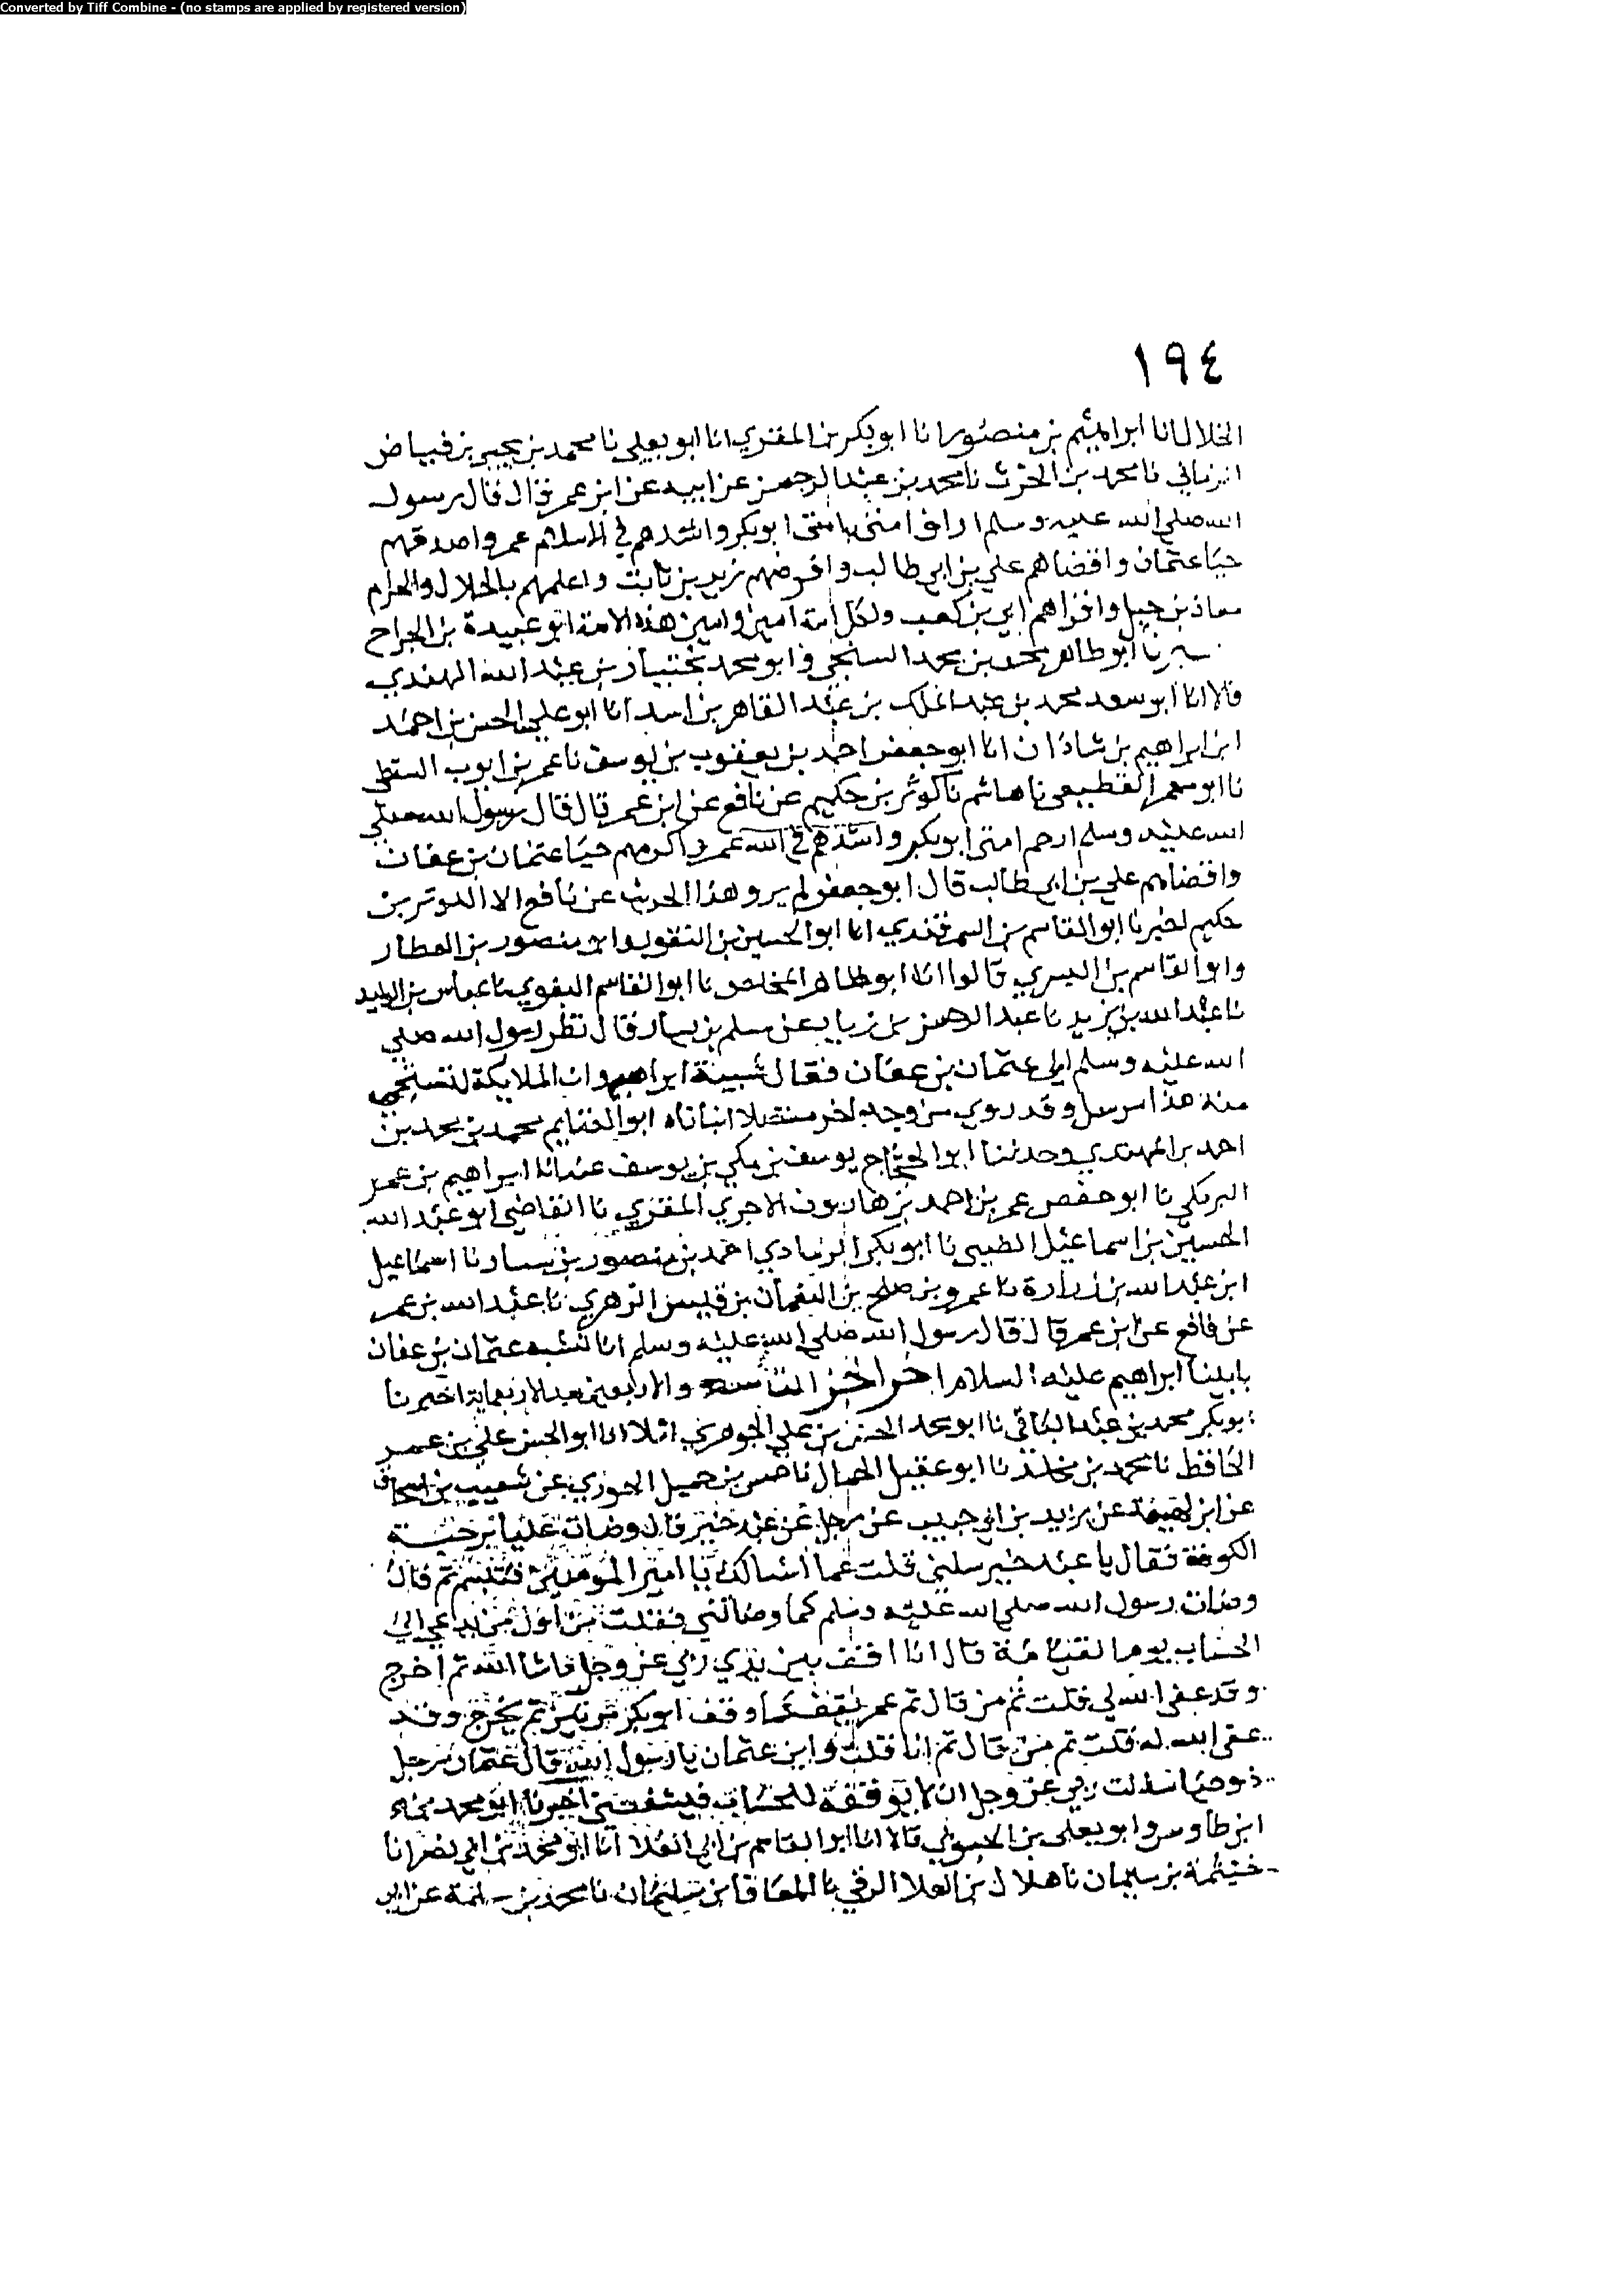 Converted by Tiff Combine - (no stamps are applied by registered version)
١٩٤
الخلال انا ابراهيم بن منصور انا ابو بكر بن المقري انا ابو يعلى نا محمد بن يحيى بن فياض
الزماني نا محمد بن الحرث نا محمد بن عبد الرحمن عن ابيه عن ابن عمر قال قال رسول
الله صلى الله عليه وسلم اراف امتى بامتى ابو بكر واشدهم في الاسلام عمر واصدقهم
حيا عثمان واقضاهم علي بن ابي طالب وافرضهم زيد بن ثابت واعلمهم بالحلال والحرام
معاذ بن جبل واقراهم ابي بن كعب ولكل امة امين وامين هذه الامة ابو عبيدة بن الجراح
ابو طاهر محمد بن محمد السنجي وابو محمد بختيار بن عبد الله الهندي
قالا انا ابو سعد محمد بن عبد الملك بن عبد القاهر بن اسد انا ابو علي الحسن بن احمد
ابن ابراهيم بن شاذان انا ابو جعفر احمد بن يعقوب بن يوسف نا عمر بن ايوب السقطي
نا ابو معمر القطيعي نا هاشم نا كوثر بن حكيم عن نافع عن ابن عمر قال قال رسول الله صلى
الله عليه وسلم ارحم امتى ابو بكر واشدهم في الله عمر واكرمهم حيا عثمان بن عفان
واقضاهم علي بن ابي طالب قال ابو جعفر لم يرو هذا الحديث عن نافع الا الكوثر بن
حكيم اخبرنا ابو القاسم بن السمرقندي انا ابو الحسين بن النقور وابو منصور بن العطار
وابو القاسم بن البسري قالوا انا ابو طاهر المخلص نا ابو القاسم البغوي نا عباس بن الوليد
نا عبد الله بن يزيد نا عبد الرحمن بن زياد عن مسلم بن يسار قال نظر رسول الله صلى
الله عليه وسلم الى عثمان بن عفان فقال شبيه ابراهيم وان الملايكة لتستحي
منه هذا مرسل وقد روي من وجه اخر متصلا انباناه ابو الغنايم محمد بن محمد بن
احمد بن المهتدي وحدثنا ابو الحجاج يوسف بن مكي بن يوسف عنه انا ابراهيم بن عمر
البرمكي نا ابو حفص عمر بن احمد بن هارون الاجري المقري نا القاضي ابو عبد الله
الحسين بن اسماعيل الطيبي نا ابو بكر الرمادي احمد بن منصور بن سيار نا اسماعيل
ابن عبد الله بن زرارة نا عمرو بن صلح بن النعمان بن قيس الزهري نا عبد الله بن عمر
عن نافع عن ابن عمر قال قال رسول الله صلى الله عليه وسلم انا نشبه عثمان بن عفان
بابينا ابراهيم عليه السلام اخر الجز التاسع والاربعين بعد الاربعماية اخبرنا
ابو بكر محمد بن عبد الباقي نا ابو محمد الحسن بن علي الجوهري املا انا ابو الحسن علي بن عمر
الحافظ نا محمد بن مخلد نا ابو عقيل الجمال نا حسن بن جميل الحوزي عن شعيب بن اسحاق
عن ابن لهيعة عن يزيد بن ابي حبيب عن رجل عن عبد خير قال وضات عليا برحبة
الكوفة فقال يا عبد خير سلني قلت عما اسالك يا امير المؤمنين فتبسم ثم قال
وضات رسول الله صلى الله عليه وسلم كما وضاتني فقلت من اول من يدعي الى
الحساب يوم القيامة قال انا اقف بين يدي ربي عز وجل ماشا الله ثم اخرج
وقد عفى الله لي قلت ثم من قال ثم عمر يقف كما وقف ابو بكر مرتين ثم يخرج وقد
عفى الله له قلت ثم من قال ثم انا قلت واين عثمان يا رسول الله قال عثمان رجل
ذو حيا سالت ربي عز وجل ان لا يوقفه للحساب فيشفعني اخبرنا ابو محمد
ابن طاوس وابو يعلى بن الحبوبي قالا انا ابو القاسم بن ابي العلا انا ابو محمد بن ابي نصر انا
خيثمة بن سليمان نا هلال بن العلا الرقي نا المعافا بن سليمان نا محمد بن سلمة عن ابي